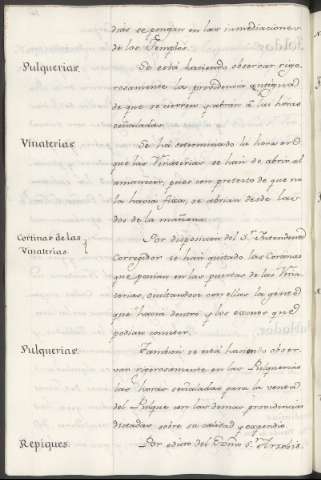 das se pongan en las inmediaciones
de los Templos.
Pulquerias. Se está haciendo observar rigo-
rosamente la providencia antigua
de que se cierren y abran á las horas
señaladas.
Vinaterias. Se há determinado la hora en
que las Vinaterias se han de abrir al
amanecer, pues con pretexto de que no
la havia fixa, se abrian desde las
dos de la mañana.
Cortinas de las Vinaterias. Por disposicion del Sr. Intendente
Corregidor se han quitado las Cortinas
que ponian en las puertas de las Vina-
terias, quitandose con ellas la gente
que havia dentro y los excesos que
podian cometer.
Pulquerias. Tambien se está haciendo obser-
var rigorosamente en las Pulquerias
las horas señaladas para la venta
del Pulque con las demas providencias
dictadas sobre su calidad y expendio.
Repiques. Por edicto del Exmo. Sr. Arzobis-